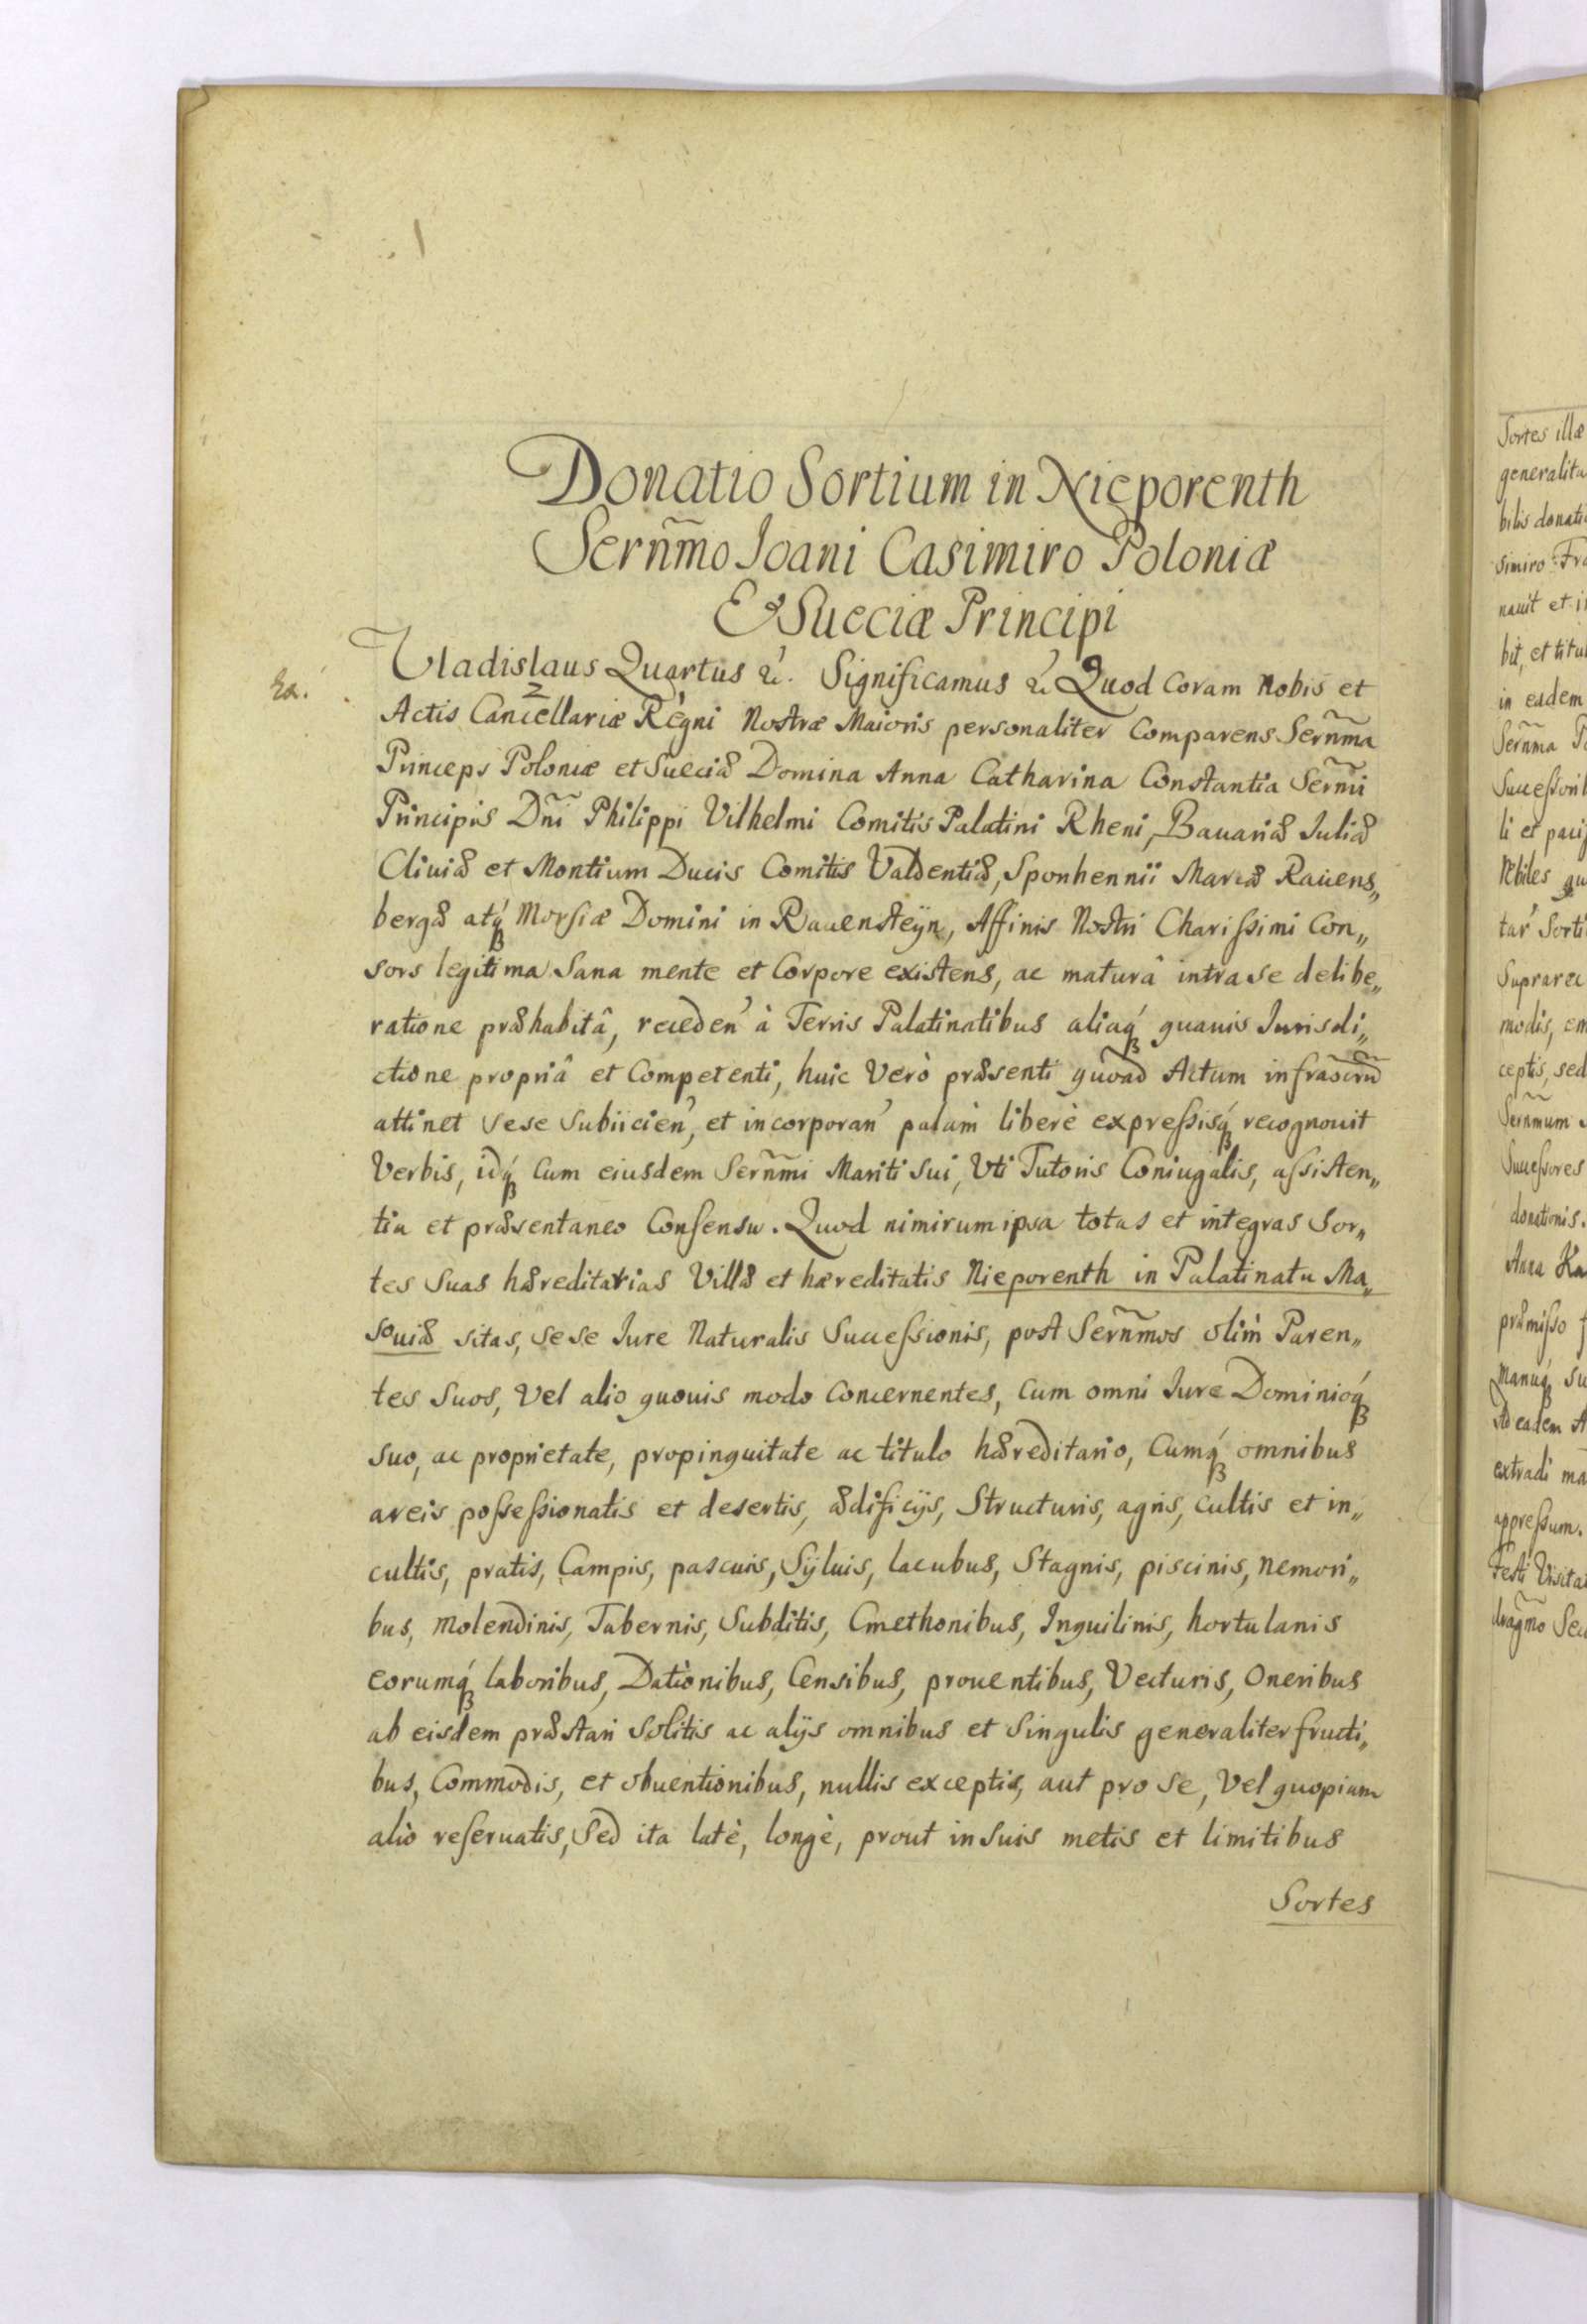 Donatio Sortium in Nieporenth
Sern̄mo Joani Casimiro Poloniæ
Et Sueciæ Principi
Vladislaus Quartus &c. Significamus &c Quod Coram Nobis et
Actis Cancellariæ Regni Nostræ Maioris personaliter Comparens Sern̄ma
Princeps Poloniæ et Sueciæ Domina Anna Catharina Constantia Sern̄mi
Principis Dn̄i Philippi Vilhelmi Comitis Palatini Rheni, Bauariæ Juliæ
Cliuiæ et Montium Ducis Comitis Valdentiæ, Sponhennii Marciæ Rauens„
bergæ atq́ꝫ Morsiæ Domini in Rauensteÿn, Affinis Nostri Charissimi Con„
sors legitima Sana mente et Corpore existens, ac maturâ intra se delibe„
ratione præhabitâ, receden̓ à Terris Palatinatibus aliaq́ꝫ quauis Jurisdi„
ctione propriâ et Competenti, huic Verò præsenti quoad Actum infrascrm̄
attinet sese Subiicien̓, et incorporan̓ palàm liberè expressisq́ꝫ recognouit
Verbis, idq́ꝫ Cum eiusdem Sern̄mi Mariti Sui, Vti Tutoris Coniugalis, assisten„
tia et præsentaneo Consensu. Quod nimirum ipsa totas et integras Sor„
tes Suas hæreditarias Villæ et hæreditatis Nieporenth in Palatinatu Ma„
souiæ sitas, sese Jure Naturalis Successionis, post Sern̄mos olim Paren„
tes Suos, Vel alio quouis modo Concernentes, Cum omni Jure Dominioq́ꝫ
suo, ac proprietate, propinquitate ac titulo hæreditario, Cumq́ꝫ omnibus
areis possessionatis et desertis, ædificijs, Structuris, agris, Cultis et in„
cultis, pratis, Campis, pascuis, Sÿluis, lacubus, Stagnis, piscinis, nemori„
bus, Molendinis, Tabernis, Subditis, Cmethonibus, Inquilinis, hortulanis
eorumq́ꝫ laboribus, Dationibus, Censibus, prouentibus, Vecturis, Oneribus
ab eisdem præstari Solitis ac alijs omnibus et Singulis generaliter fructi„
bus, Commodis, et obuentionibus, nullis exceptis, aut pro se, Vel quopiam
aliò reseruatis, Sed ita latè, longè, prout in Suis metis et limitibus
Sortes